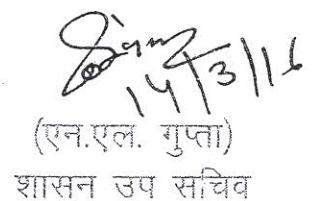 14/3/16
(एन.एल. गुप्ता)
शासन उप सचिव